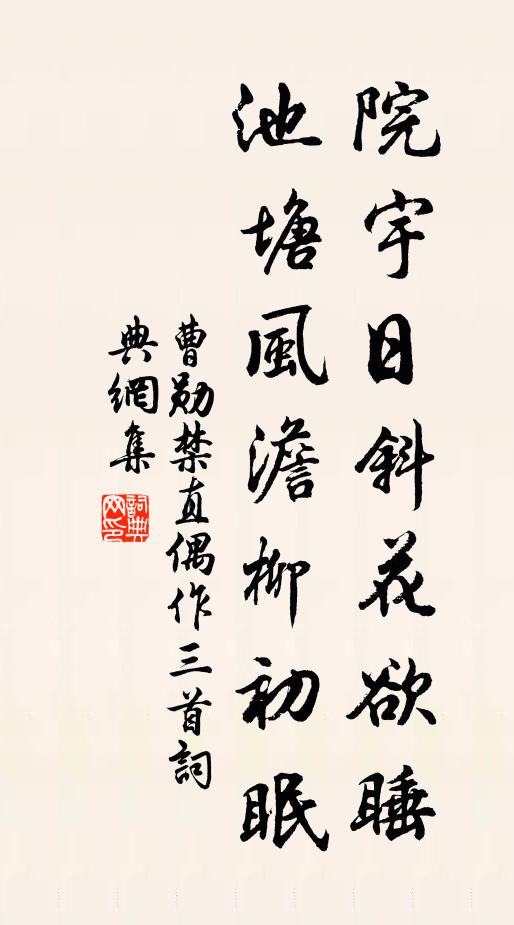 院宇日斜花欲睡
池塘風澹柳初眠
曹勛禁直偶作三首詞
典網集
詞典網印